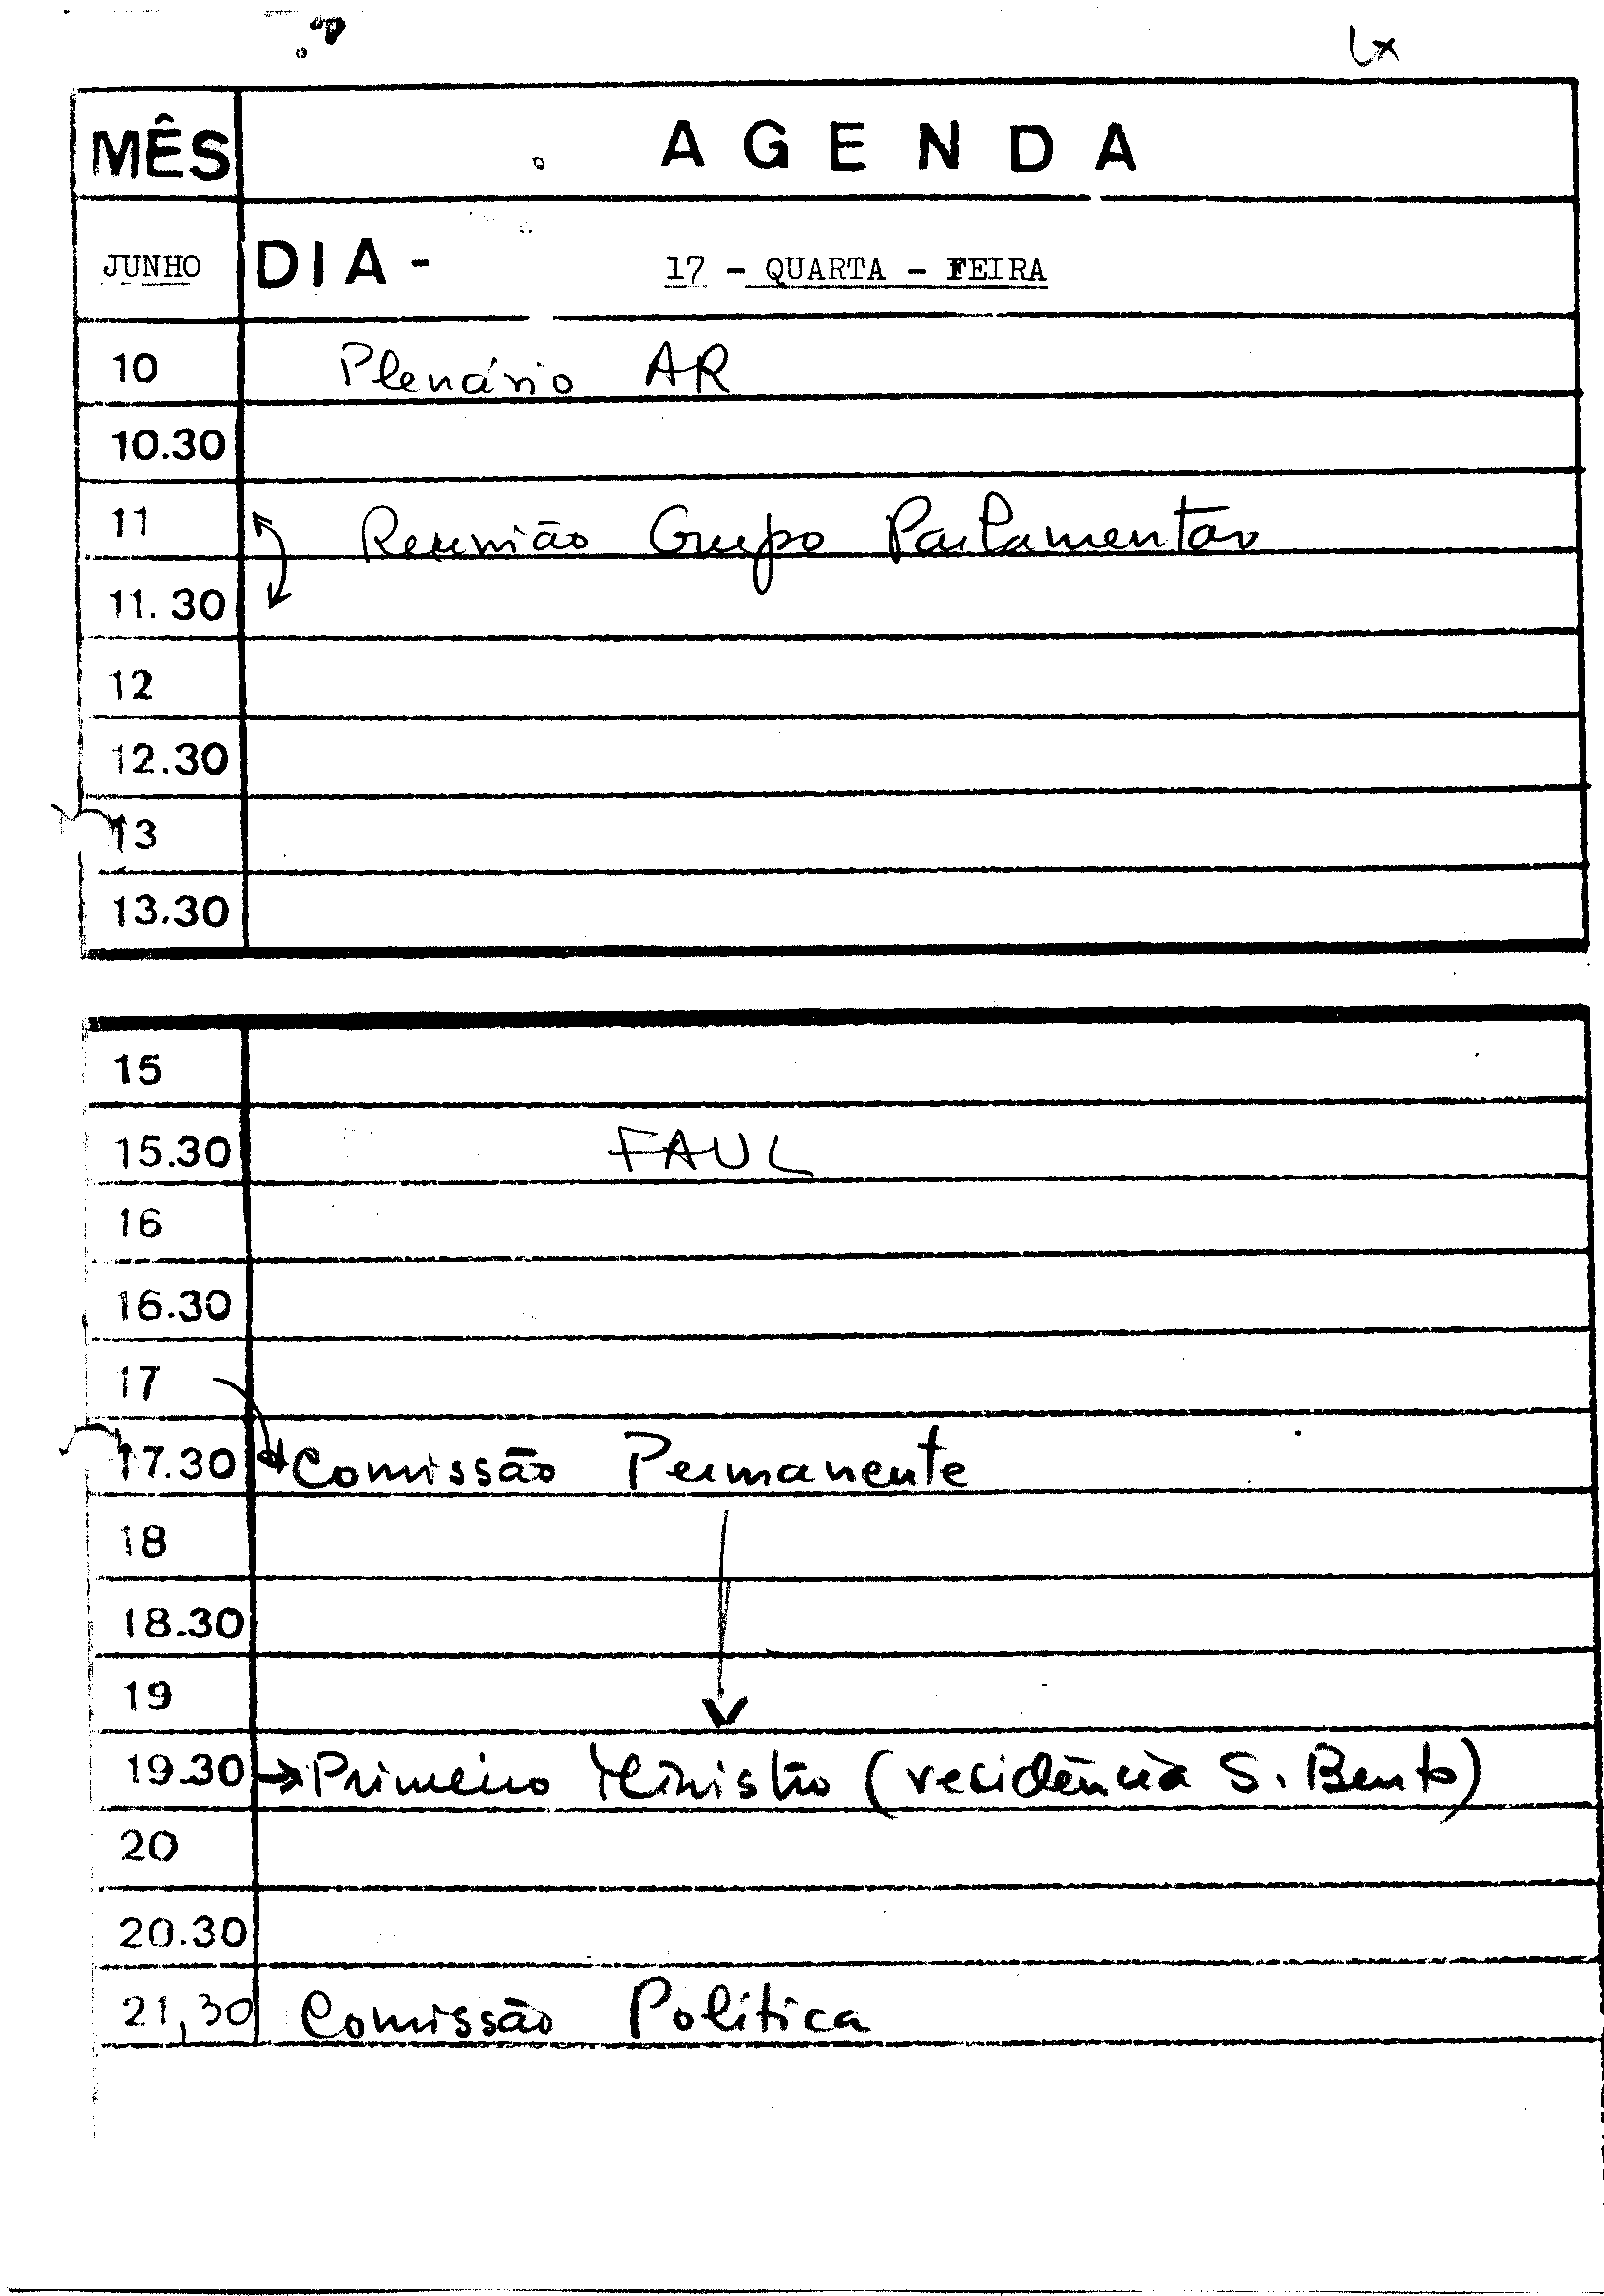 Lx
MÊS AGENDA
JUNHO DIA - 17 - QUARTA - FEIRA
10 Plenário AR
10.30
11 Reunião Grupo Parlamentar
11.30
12
12.30
13
13.30
15
15.30 FAUL
16
16.30
17
17.30 Comissão Permanente
18
18.30
19
19.30 → Primeiro Ministro (residência S. Bento)
20
20.30
21,30 Comissão Política